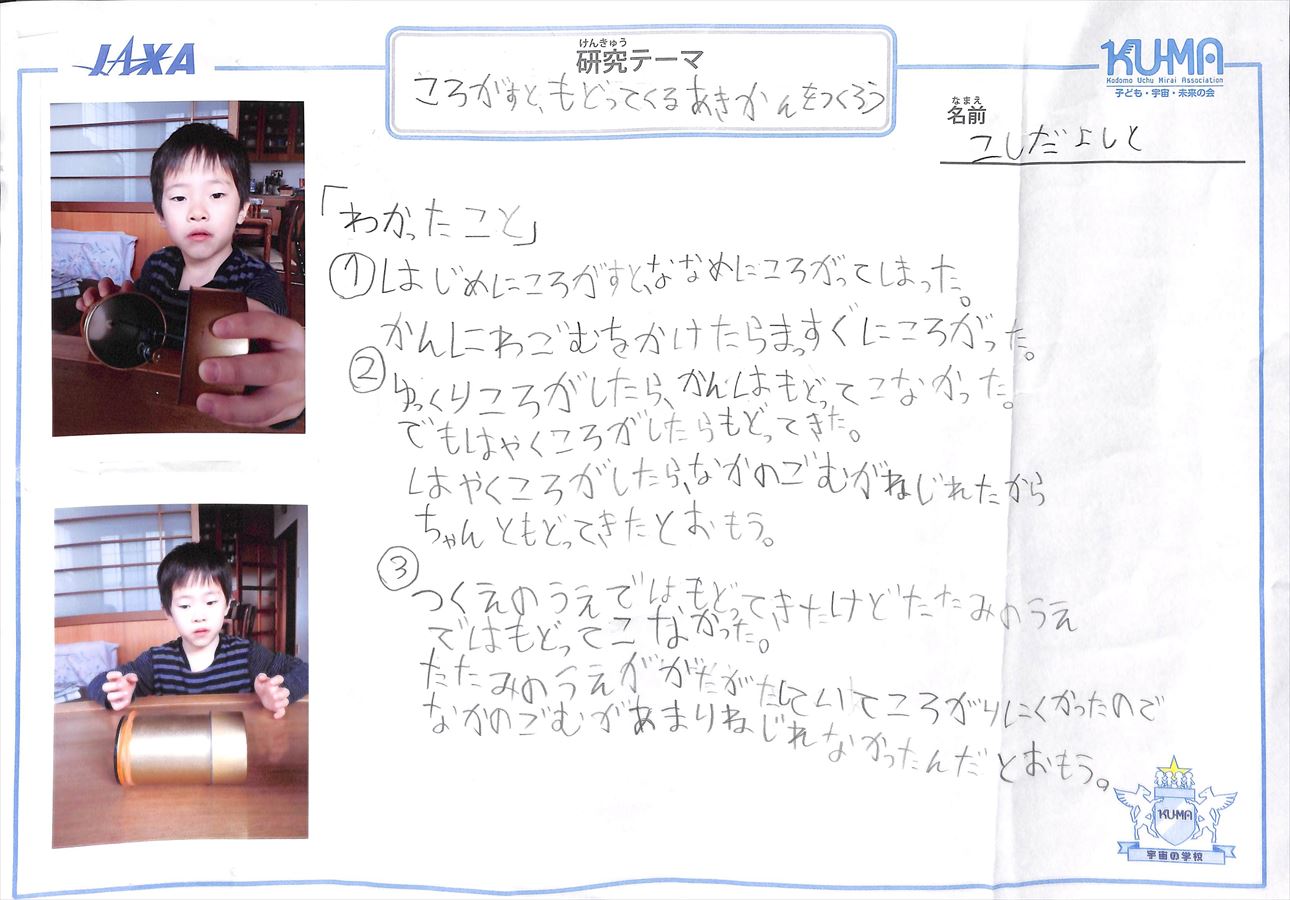 JAXA
けんきゅう
研究テーマ
ころがすと、もどってくるあきかんをつくろう
KU-MA
Kodomo Uchu Mirai Association
子ども・宇宙・未来の会
なまえ
名前
こしだよしと
「わかったこと」
①はじめにころがすと、ななめにころがってしまった。
かんにわごむをかけたらまっすぐにころがった。
②ゆっくりころがしたら、かんはもどってこなかった。
でもはやくころがしたらもどってきた。
はやくころがしたら、なかのごむがねじれたから
ちゃんともどってきたとおもう。
③つくえのうえではもどってきたけどたたみのうえ
ではもどってこなかった。
たたみのうえががたがたしていてころがりにくかったので
なかのごむがあまりねじれなかったんだとおもう。
KU-MA
宇宙の学校